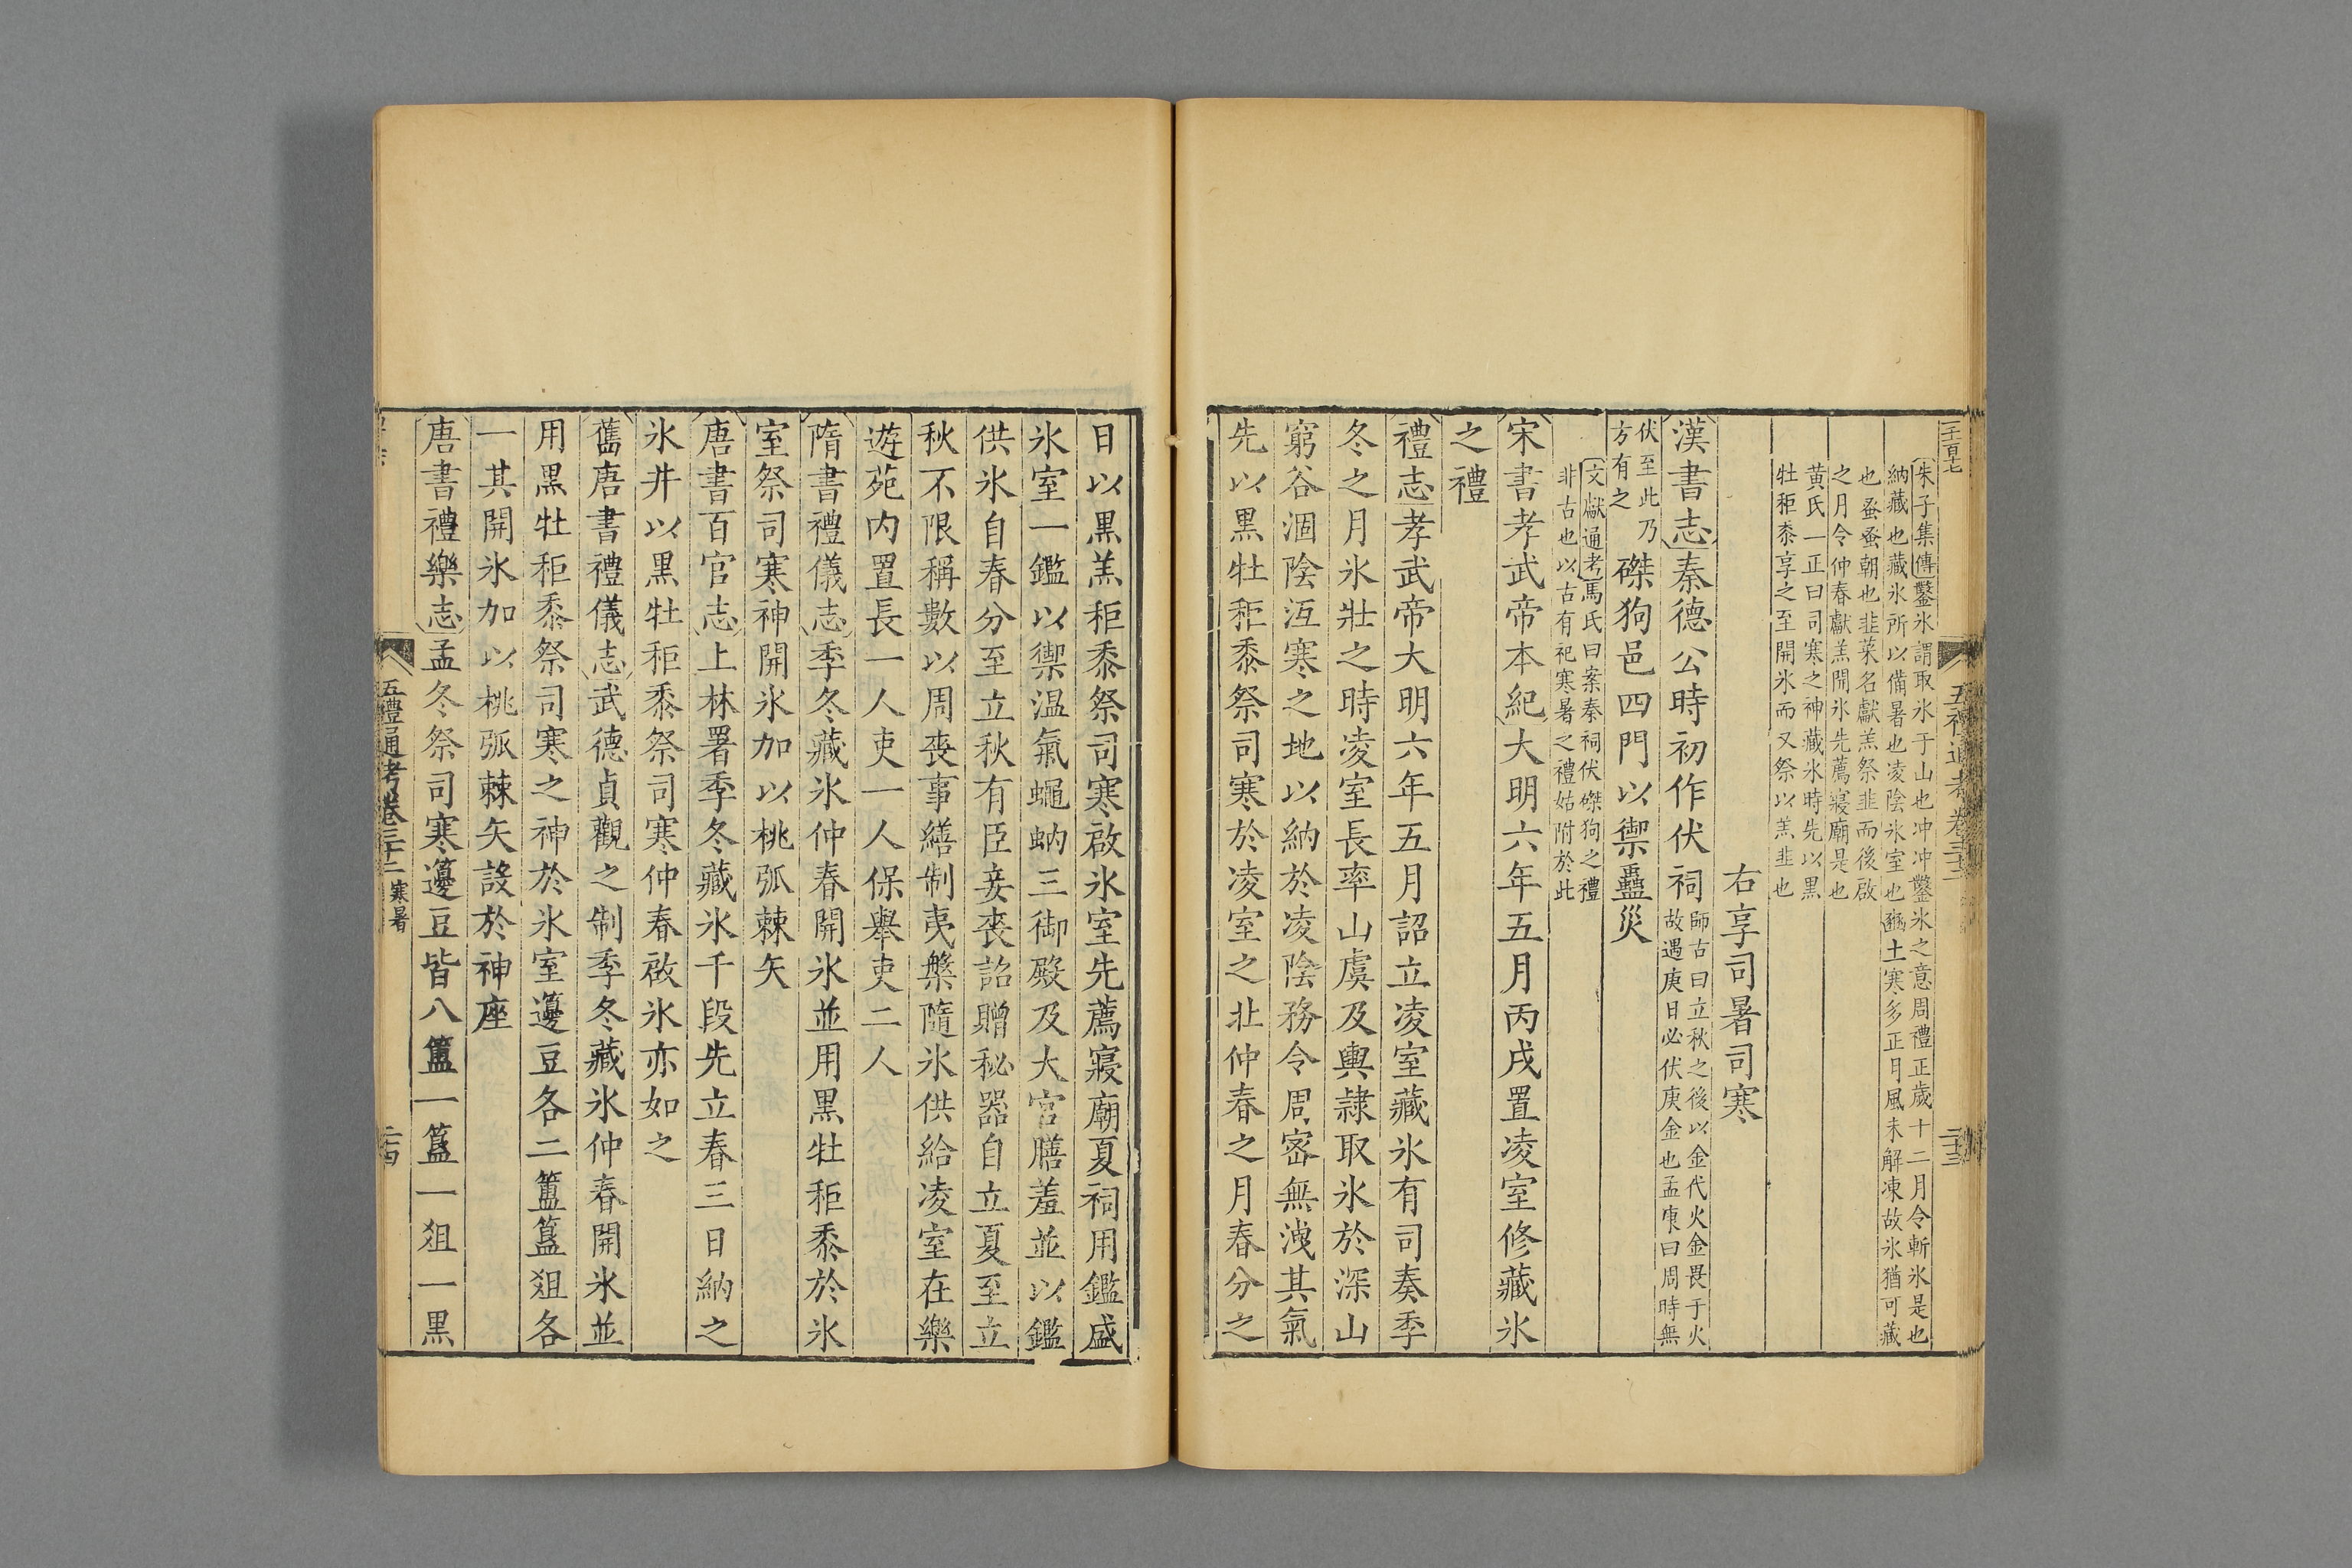 朱子集傳鑿氷謂取氷于山也冲冲鑿氷之意周禮正歲十二月令斬氷是也
納藏也藏氷所以備暑也凌陰氷室也豳土寒多正月風未解凍故氷猶可藏
也蚤蚤朝也韭菜名獻羔祭韭而後啟
之月令仲春獻羔開氷先薦寢廟是也
黃氏一正曰司寒之神藏氷時先以黑
牡秬黍享之至開氷而又祭以羔韭也
右享司暑司寒
漢書志秦德公時初作伏祠師古曰立秋之後以金代火金畏于火
故遇庚日必伏庚金也孟康曰周時無
伏至此乃
方有之
磔狗邑四門以禦蠱災
文獻通考馬氏曰案秦祠伏磔狗之禮
非古也以古有祀寒暑之禮姑附於此
宋書孝武帝本紀大明六年五月丙戌置凌室修藏氷
之禮
禮志孝武帝大明六年五月詔立凌室藏氷有司奏季
冬之月氷壯之時凌室長率山虞及輿隷取氷於深山
窮谷涸陰沍寒之地以納於凌陰務令周密無洩其氣
先以黑牡秬黍祭司寒於凌室之北仲春之月春分之
日以黑羔秬黍祭司寒啟氷室先薦寢廟夏祠用鑑盛
氷室一鑑以禦温氣蠅蚋三御殿及大官膳羞並以鑑
供氷自春分至立秋有臣妾喪詔贈秘器自立夏至立
秋不限稱數以周喪事繕制夷槃隨氷供給凌室在樂
遊苑内置長一人吏一人保舉吏二人
隋書禮儀志季冬藏氷仲春開氷並用黑牡秬黍於氷
室祭司寒神開氷加以桃弧棘矢
唐書百官志上林署季冬藏氷千段先立春三日納之
氷井以黑牡秬黍祭司寒仲春啟氷亦如之
舊唐書禮儀志武德貞觀之制季冬藏氷仲春開氷並
用黑牡秬黍祭司寒之神於氷室籩豆各二簠簋俎各
一其開氷加以桃弧棘矢設於神座
唐書禮樂志孟冬祭司寒籩豆皆八簠一簋一俎一黑
五禮通考卷三十二 寒暑
二十四